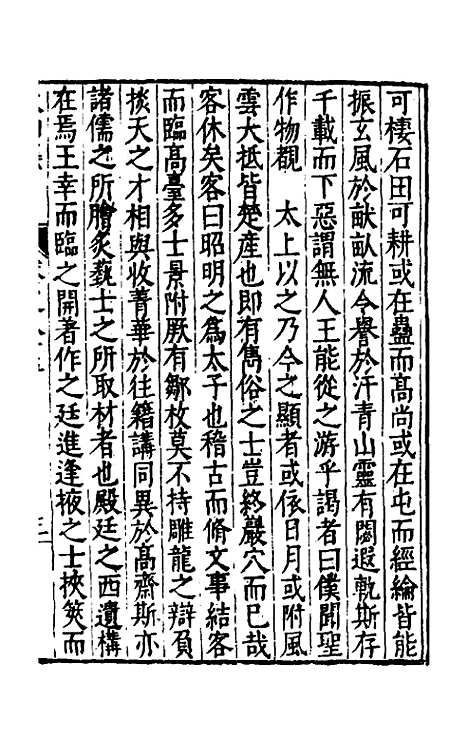 可棲石田可耕或在蠱而髙尚或在屯而經綸皆能
振玄風於畎畝流令譽於汗青山靈有閟遐軌斯存
千載而下惡謂無人王能從之游乎謁者曰僕聞聖
作物觀　太上以之乃今之顯者或依日月或附風
雲大抵皆楚産也即有雋俗之士豈終巖穴而已哉
客休矣客曰昭明之爲太子也稽古而脩文事結客
而臨髙臺多士景附厥有鄒枚莫不持雕龍之辯負
掞天之才相與收菁華於往籍講同異於髙齋斯亦
諸儒之所膾炙藝士之所取材者也殿廷之西遺構
在焉王幸而臨之開著作之廷進逢掖之士挾筴而